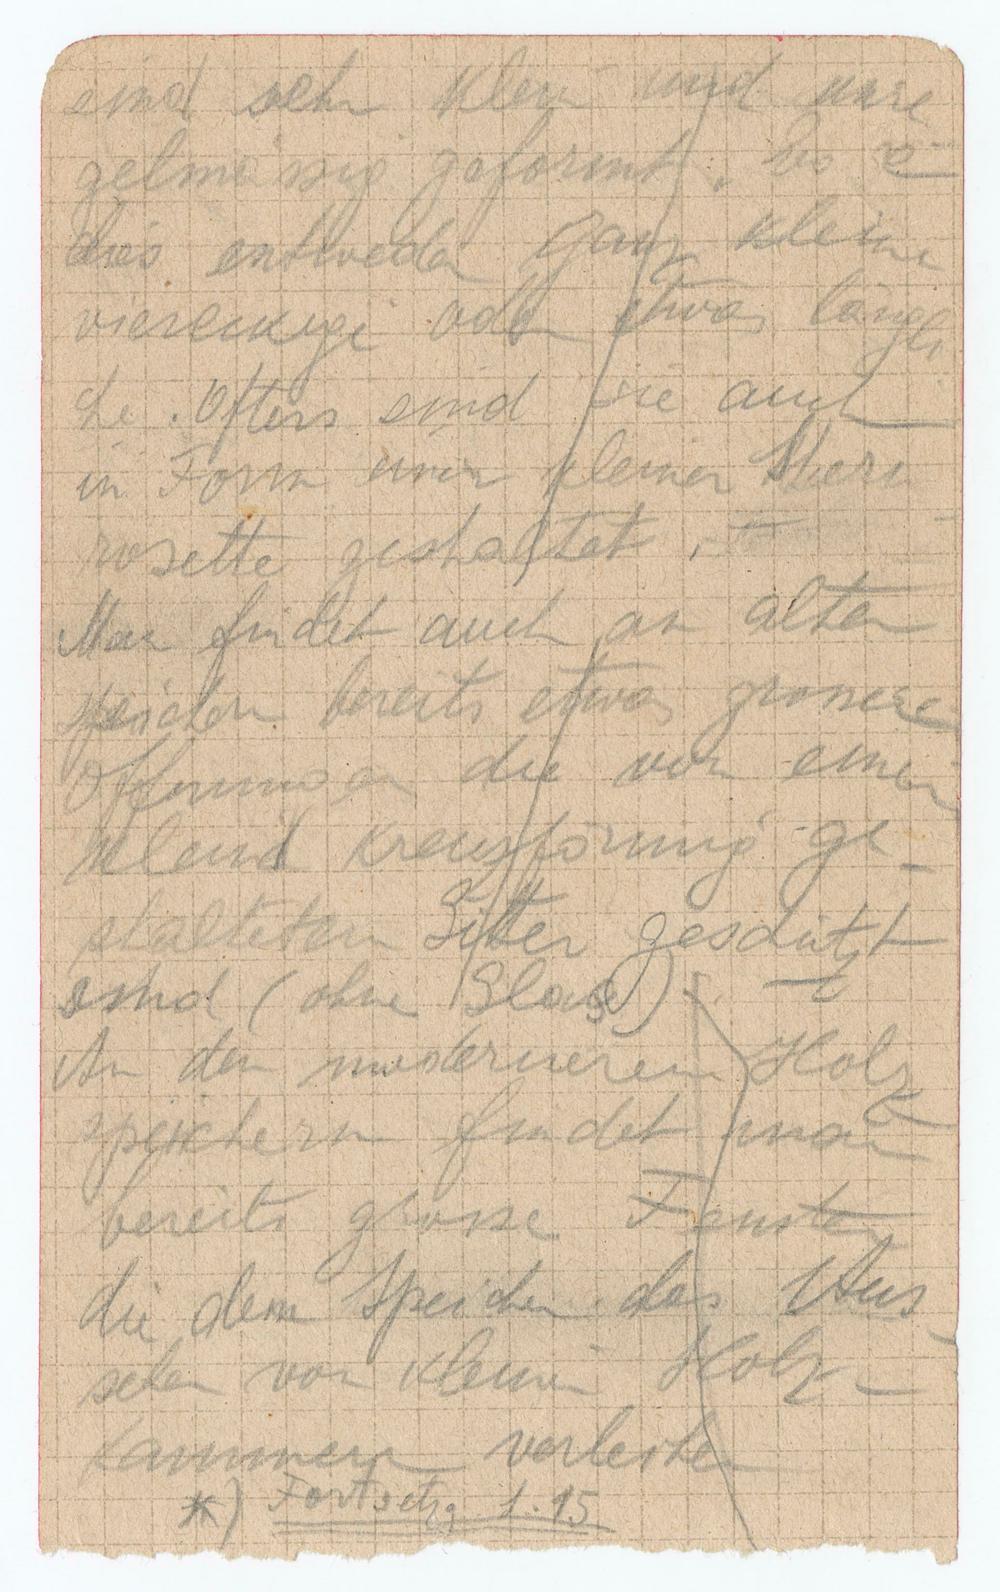 sind sehr klein und unre
gelmässig geformt. Es
dies entweder ganz kleine
viereckige oder etwas längli
che. Öfters sind sie auch
in Form einer kleinen Stern
rosette gestaltet.
Man findet auch an alten
speichern bereits etwas grossere
Öffnungen die von einem
kreuzförmig ge-
stalteten Gitter geschützt
sind (ohne Glas)
An den moderneren Holz
speichern findet man
bereits grosse Fenster
die dem Speicher das Aus
sehen von kleinen Holz-
kammern verleihen
*) Fortsetzg S. 15